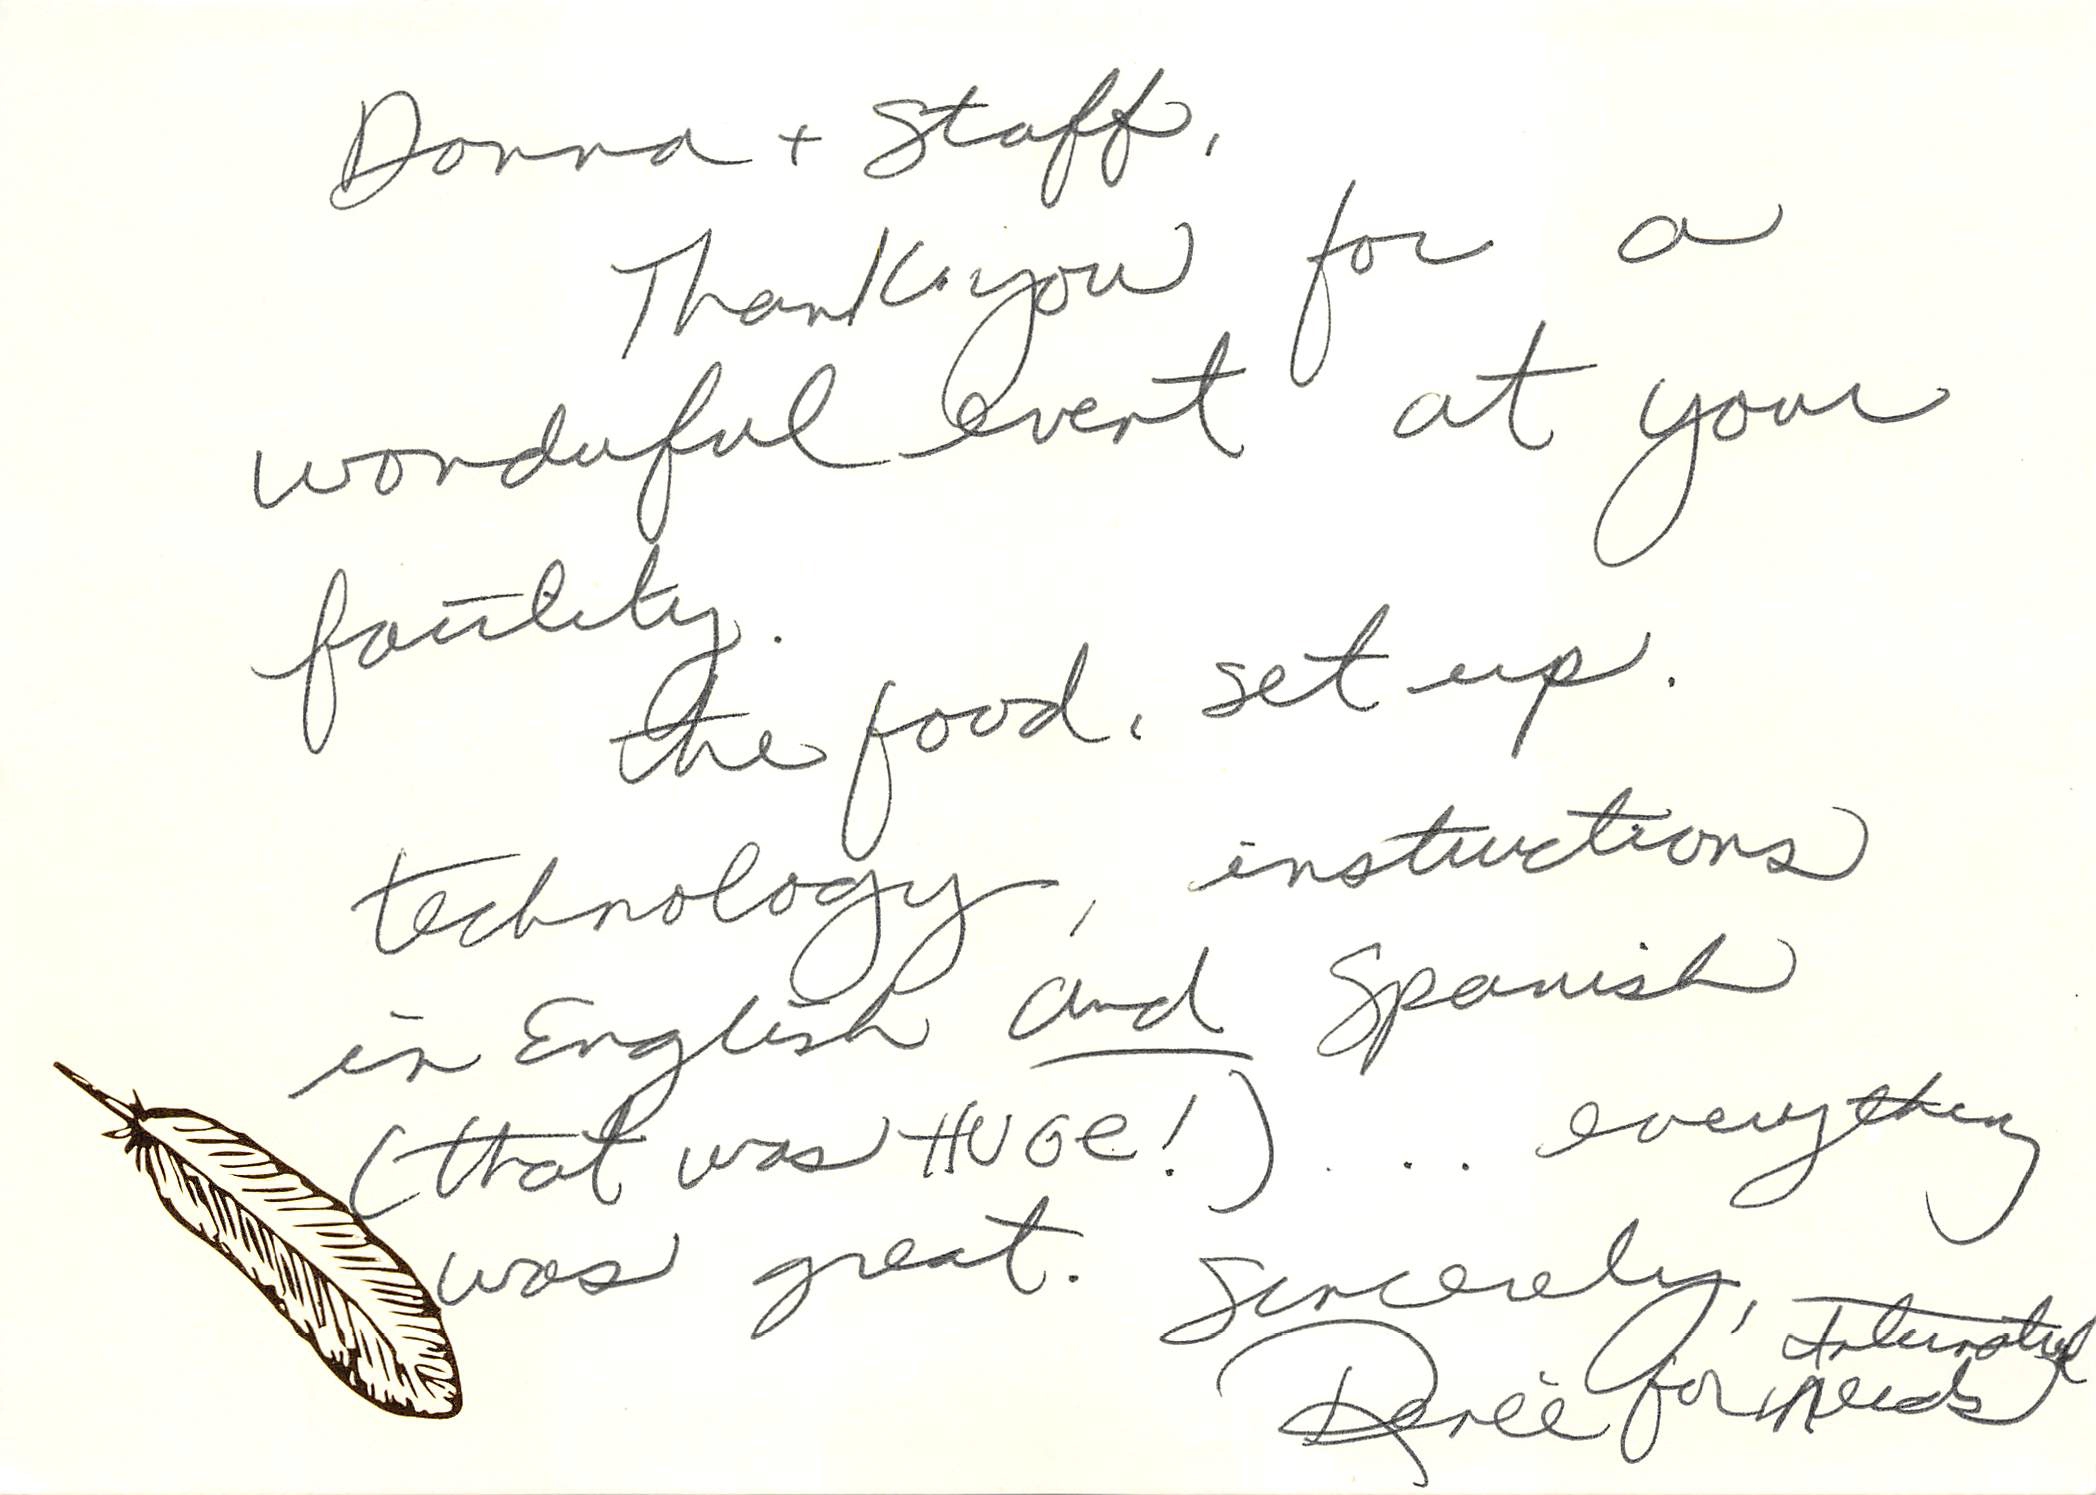 Donna + Staff,
Thank you for a
wonderful event at your
facility.
the food, set up.
technology, instructions
in English and Spanish
(that was HUGE!) .... everything
was great.
Sincerely,
Renée for International
Meds